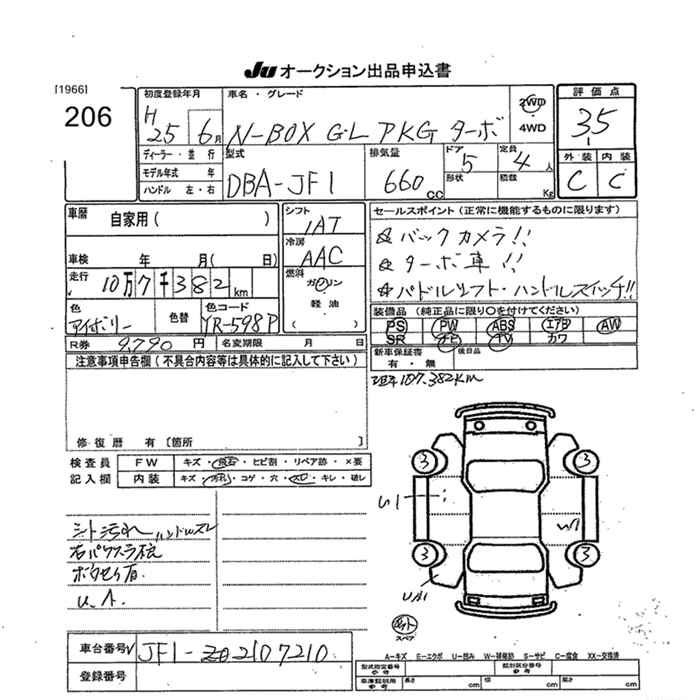 Ju オークション出品申込書
[1966]
206
初度登録年月 車名・グレード 2WD 4WD 評価点
H 25 6月 N-BOX G・L PKG ターボ 3.5
ディーラー・並行 型式 排気量 ドア 定員 外装 内装
モデル年式 年 DBA-JF1 660cc 5 4人 C C
ハンドル 左・右 形状 積載 Kg
車歴 自家用( ) シフト セールスポイント(正常に機能するものに限ります)
IAT ☆バックカメラ!!
車検 年 月( 日) 冷房 AAC ☆ターボ車!!
走行 10万7千382km 燃料 ガソリン ☆パドルシフト・ハンドルスイッチ!!
軽油
( )
色 アイボリー 色替 色コード YR-598P
装備品(純正品に限り○を付けてください)
PS PW ABS エアB AW
SR ナビ TV カワ
R券 9,790円 名変期限 月 日 新車保証書 後日品
有・無
注意事項申告欄(不具合内容等は具体的に記入して下さい)
現車107,382km
修復歴 有〔箇所 〕
検査員 記入欄
FW キズ・飛石・ヒビ割・リペア跡・×要
内装 キズ・汚れ・コゲ・穴・スロ・キレ・破レ
3 3
U1 W1
3 3
UA1
シート汚れ ハンドルスレ
U.A.
スペア
車台番号 JF1-2107210
登録番号
A―キズ E―エクボ U―凹み W―補修跡 S―サビ C―腐食 XX―交換済
型式指定番号 参考 類別区分番号 参考
車庫証明用 参考 長さ cm 幅 cm 高さ cm